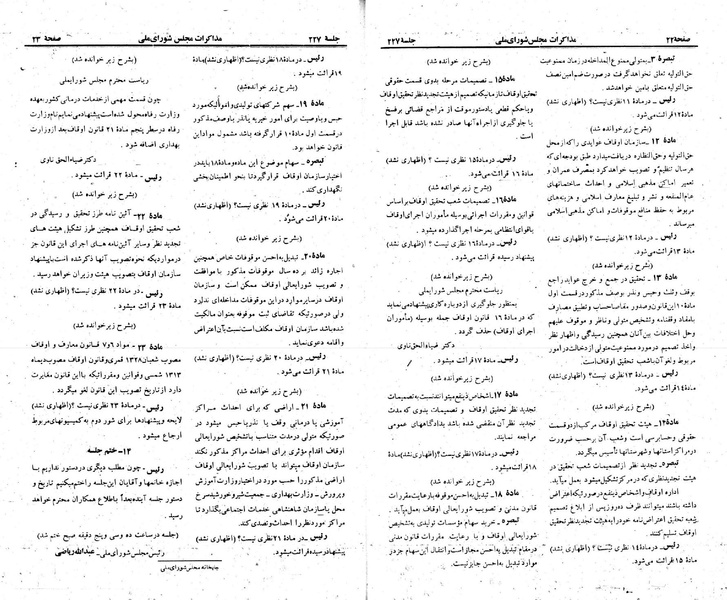 صفحهٔ ۲۲ مذاکرات مجلس شورای ملی جلسه ۲۲۷
تبصره ۳ـ متولی ممنوع المداخله در زمان ممنوعیت
حق التولیه تعلق نخواهد گرفت در صورت ضم امین نصف
حق التولیه متعلق بامین خواهد شد.
رئیس ـ در مادهٔ ۱۱ نظری نیست؟ (اظهاری نشد)
ماده ۱۲ قرائت میشود.
(بشرح زیر خوانده شد)
ماده ۱۲ ـ سازمان اوقاف عوایدی را که از محل
حق التولیه و حق النظاره دریافت میدارد طبق بودجه‌ای که
هر سال تنظیم و تصویب خواهد کرد بمصرف عمران و
تعمیر اماکن مذهبی اسلامی و احداث ساختمانهای
عام المنفعه و نشر و تبلیغ معارف اسلامی و هزینه‌های
مربوط به حفظ منافع موقوفات و اماکن مذهبی اسلامی
میرساند.
رئیس ـ در مادهٔ ۱۲ نظری نیست؟ (اظهاری نشد)
مادهٔ ۱۳ قرائت میشود.
(بشرح زیر خوانده شد)
مادهٔ ۱۳ ـ تحقیق در جمع و خرج عواید راجع
بوقف و ثلث و حبس و نذر بوصف مذکور در قسمت اول
ماده ۱۰ این قانون و صدور مفاصا حساب و تطبیق مصارف
بامفاد وقفنامه و تشخیص متولی و ناظر و موقوف علیهم
وحل اختلافات بین آنان همچنین رسیدگی و اظهار نظر
واخذ تصمیم در مورد ممنوعیت متولی از دخالت در امور
مربوط و لغو آن با شعب تحقیق اوقاف است.
رئیس ـ در ماده ۱۳ نظری نیست؟ (اظهاری نشد)
ماده ۱۴ قرائت میشود.
(بشرح زیر خوانده شد)
ماده ۱۴ـ هیئت تحقیق اوقاف مرکب از دو قسمت
حقوقی و حسابرسی است و شعب آن بر حسب ضرورت
در مراکز استانها و شهرستانها تأسیس میگردد.
تبصره ـ تجدید نظر از تصمیمات شعب تحقیق در
هیئت تجدید نظری که در مرکز تشکیل میشود بعمل میآید.
اداره اوقاف و اشخاص ذینفع در صورتیکه اعتراض
داشته باشند میتوانند ظرف ده روز پس از ابلاغ تصمیم
شعبه تحقیق اعتراض نامه خود را به هیئت تجدید نظر تحقیق
اوقاف تسلیم کنند.
رئیس ـ در مادهٔ ۱۴ نظری نیست؟ (اظهاری نشد)
ماده ۱۵ قرائت میشود.
(بشرح زیر خوانده شد)
ماده ۱۵ ـ تصمیمات مرحله بدوی قسمت حقوقی
تحقیق اوقاف تا زمانیکه تصمیم از هیئت تجدید نظر تحقیق اوقاف
و یا حکم قطعی یا دستور موقت از مراجع قضائی بر فسخ
یا جلوگیری از اجراء آنها صادر نشده باشد قابل اجرا
است.
رئیس ـ در ماده ۱۵ نظری نیست ؟ (اظهاری نشد)
ماده ۱۶ قرائت میشود.
(بشرح زیر خوانده شد)
ماده ۱۶ـ تصمیمات شعب تحقیق اوقاف بر اساس
قوانین و مقررات اجرائی بوسیله مأموران اجرای اوقاف
یا قوای انتظامی بمرحله اجرا گذارده میشود.
رئیس ـ در ماده ۱۶ نظری نیست ؟ (اظهاری نشد)
پیشنهاد رسیده قرائت میشود.
(بشرح زیر خوانده شد)
ریاست محترم مجلس شورایملی
بمنظور جلوگیری از دوباره کاری پیشنهاد مینماید
که در ماده ۱۶ قانون اوقاف جمله بوسیله (مأموران
اجرای اوقاف) حذف گردد .
دکتر ضیاء الحق ناوی
رئیس ـ ماده ۱۷ قرائت میشود.
(بشرح زیر خوانده شد)
ماده ۱۷ـ اشخاص ذینفع میتوانند نسبت به تصمیمات
تجدید نظر تحقیق اوقاف و تصمیمات بدوی که مدت
تجدید نظر آن منقضی شده باشد بدادگاههای عمومی
مراجعه نمایند.
رئیس ـ در ماده ۱۷ نظری نیست؟ (اظهاری نشد) ماده
۱۸ قرائت میشود.
(بشرح زیر خوانده شد)
ماده ۱۸ ـ تبدیل به احسن موقوفه با رعایت مقررات
قانون مدنی و تصویب شورایعالی اوقاف بعمل میآید.
تبصره ـ خرید سهام مؤسسات تولیدی به تشخیص
شورایعالی اوقاف و با رعایت مقررات قانون مدنی
در مقام تبدیل به احسن مجاز است و انتقال این سهام جز در
موارد تبدیل به احسن جایز نیست.
جلسه ۲۲۷ مذاکرات مجلس شورای ملی صفحهٔ ۲۳
رئیس ـ در مادهٔ ۱۸ نظری نیست؟ (اظهاری نشد) مادهٔ
۱۹ قرائت میشود.
(بشرح زیر خوانده شد)
ماده ۱۹ـ سهم شرکتهای تولیدی و اموال که مورد
حبس و یا وصیت برای امور خیریه یا نذر باوصف مذکور
در قسمت اول ماده ۱۰ قرار گرفته باشد مشمول مواد این
قانون خواهد بود.
تبصره ـ سهام موضوع این ماده و ماده ۱۸ باید در
اختیار سازمان اوقاف قرار گیرد تا بنحو اطمینان بخشی
نگهداری کند.
رئیس ـ در مادهٔ ۱۹ نظری نیست؟ (اظهاری نشد)
مادهٔ ۲۰ قرائت میشود.
(بشرح زیر خوانده شد)
ماده ۲۰ـ تبدیل به احسن موقوفات خاص همچنین
اجاره زائد بر ده سال موقوفات مذکور با موافقت
و تصویب شورایعالی اوقاف ممکن است و سازمان
اوقاف در سایر موارد در این موقوفات مداخله‌ای ندارد
ولی در صورتیکه تقاضای ثبت موقوفه بعنوان مالکیت
شده باشد سازمان اوقاف مکلف است نسبت به آن اعتراض
و اقامه دعوی نماید.
رئیس ـ در ماده ۲۰ نظری نیست؟ (اظهاری نشد)
ماده ۲۱ قرائت میشود.
(بشرح زیر خوانده شد)
مادهٔ ۲۱ ـ اراضی که برای احداث مراکز
آموزشی یا درمانی وقف یا نذر یا حبس میشود در
صورتیکه متولی در مدت متناسب با تشخیص شورایعالی
اوقاف اقدام مؤثری برای احداث مراکز مذکور نکند
سازمان اوقاف میتواند با تصویب شورایعالی اوقاف
اراضی مذکور را حسب مورد در اختیار وزارت آموزش
و پرورش ـ وزارت بهداری ـ جمعیت شیر و خورشید سرخ
محل یا سازمان شاهنشاهی خدمات اجتماعی بگذارد تا
مراکز مورد نظر را احداث و تصدی کند.
رئیس ـ در مادهٔ ۲۱ نظری نیست؟ (اظهاری نشد)
پیشنهاد رسیده قرائت میشود.
(بشرح زیر خوانده شد)
ریاست محترم مجلس شورایملی
چون قسمت مهمی از خدمات درمانی کشور بعهده
وزارت رفاه محول شده است پیشنهاد مینمایم نام وزارت
رفاه در سطر پنجم ماده ۲۱ قانون اوقاف بعد از وزارت
بهداری اضافه شود.
دکتر ضیاء الحق ناوی
رئیس ـ ماده ۲۲ قرائت میشود.
(بشرح زیر خوانده شد)
مادهٔ ۲۲ـ آئین نامه طرز تحقیق و رسیدگی در
شعب تحقیق اوقاف همچنین طرز تشکیل هیئت های
تجدید نظر و سایر آئین نامه های اجرای این قانون جز
در مواردیکه نحوه تصویب آنها ذکر شده است با پیشنهاد
سازمان اوقاف بتصویب هیئت وزیران خواهد رسید.
رئیس ـ در مادهٔ ۲۲ نظری نیست؟ (اظهاری نشد)
مادهٔ ۲۳ قرائت میشود.
(بشرح زیر خوانده شد)
مادهٔ ۲۳ ـ مواد ۶ و۷ قانون معارف و اوقاف
مصوب شعبان ۱۳۲۸ قمری و قانون اوقاف مصوب دیماه
۱۳۱۳ شمسی و قوانین و مقرراتیکه با این قانون مغایرت
دارد از تاریخ تصویب این قانون لغو میگردد.
رئیس ـ در مادهٔ ۲۳ نظری نیست؟ (اظهاری نشد)
لایحه و پیشنهادها برای شور دوم به کمیسیونهای مربوط
ارجاع میشود.
۱۳ـ ختم جلسه
رئیس ـ چون مطلب دیگری در دستور نداریم با
اجازه خانمها و آقایان این جلسه را ختم میکنیم تاریخ و
دستور جلسه آینده بعداً باطلاع همکاران محترم خواهد
رسید.
(جلسه در ساعت ده و سی و پنج دقیقه صبح ختم شد)
رئیس مجلس شورای ملی ـ عبدالله ریاضی
چاپخانه مجلس شورای ملی